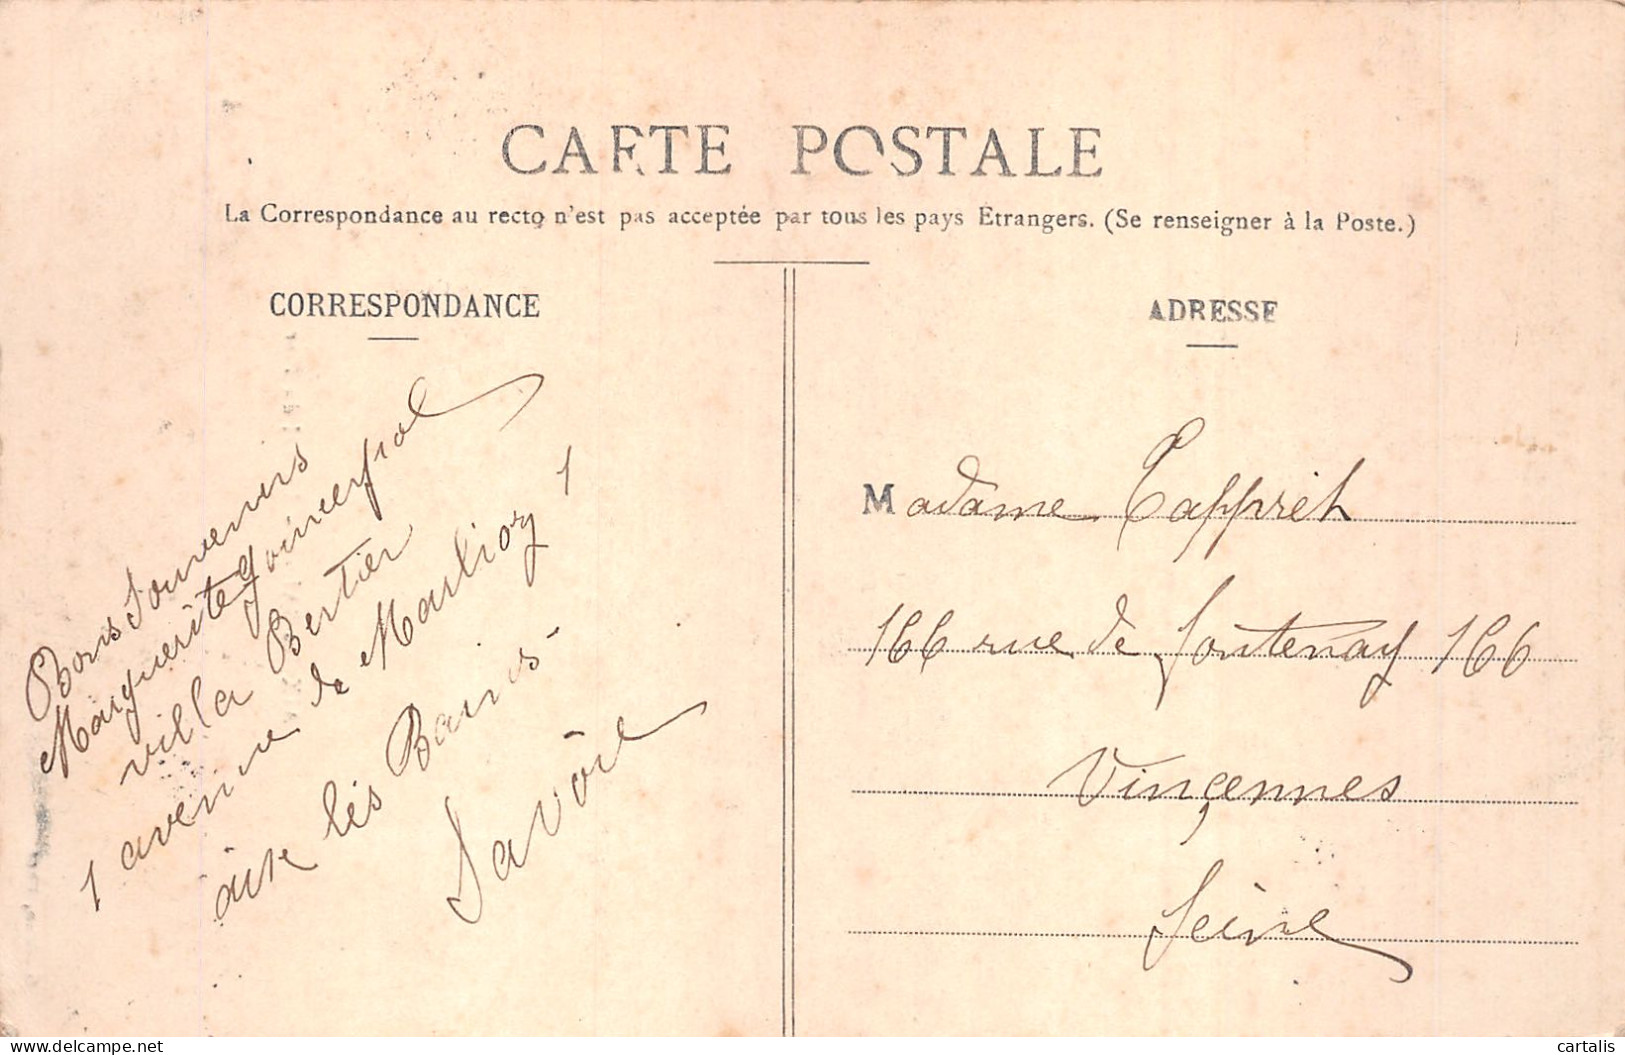 CARTE POSTALE
La Correspondance au recto n'est pas acceptée par tous les pays Étrangers. (Se renseigner à la Poste.)
CORRESPONDANCE
Bons Souvenirs
Marguerite
villa Bertier
1 avenue de Marlioz 1
aix les Bains
Savoie
ADRESSE
Madame Tappret
166 rue de Fontenay 166
Vincennes
Seine
delcampe.net
cartalis